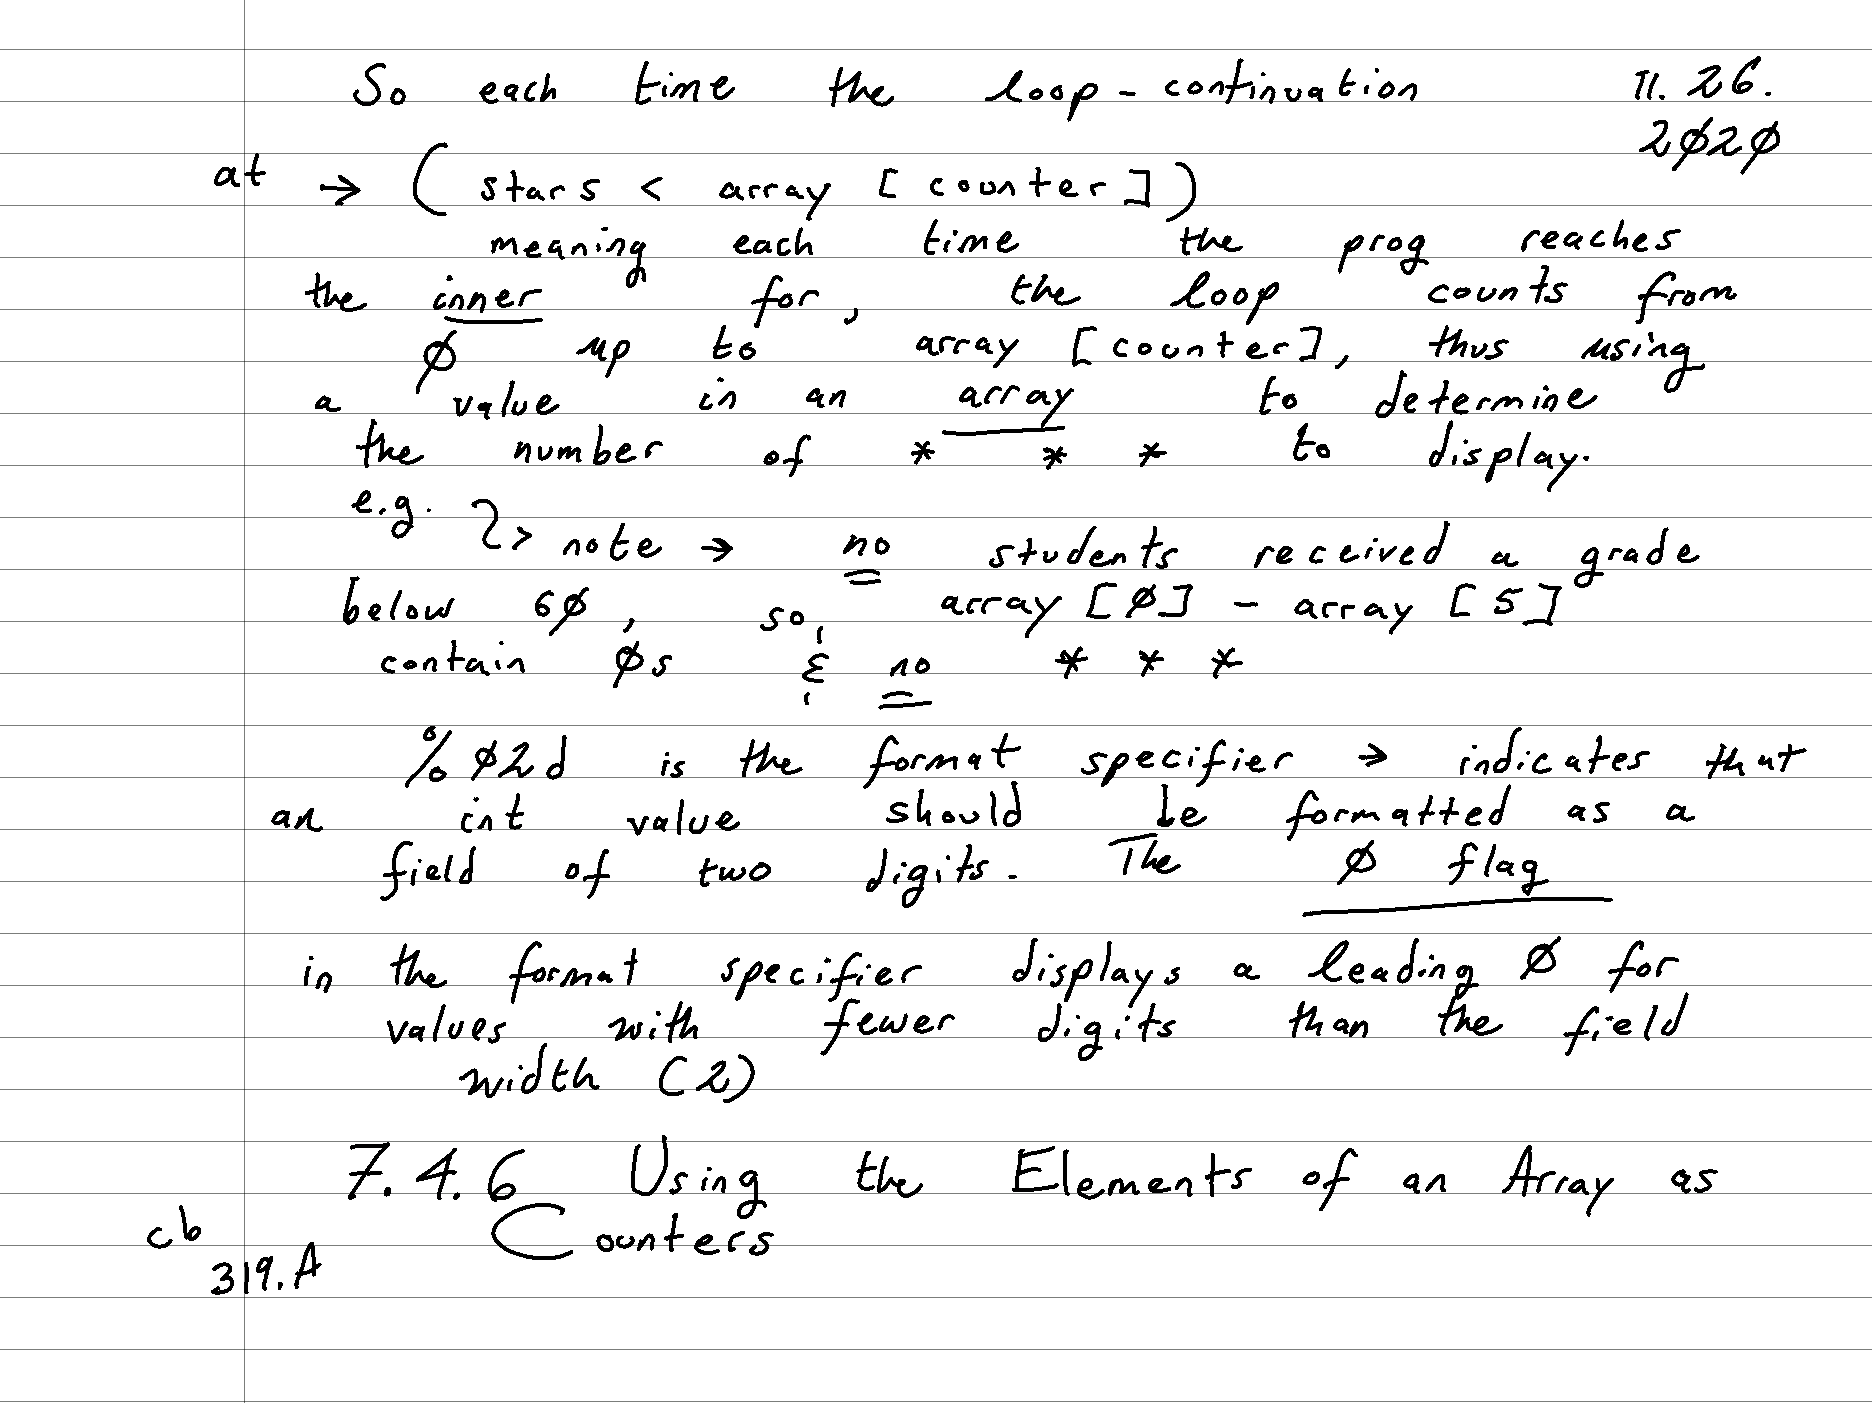 So each time the loop-continuation 11.26.
2020
at → (stars < array [counter])
meaning each time the prog reaches
the inner for, the loop counts from
0 up to array [counter], thus using
a value in an array to determine
the number of * * * to display.
e.g. > note → no students received a grade
below 60, so, array [0] - array [5]
contain 0s & no * * *
%02d is the format specifier → indicates that
an int value should be formatted as a
field of two digits. The 0 flag
in the format specifier displays a leading 0 for
values with fewer digits than the field
width (2)
7.4.6 Using the Elements of an Array as
Counters
cb
319.A